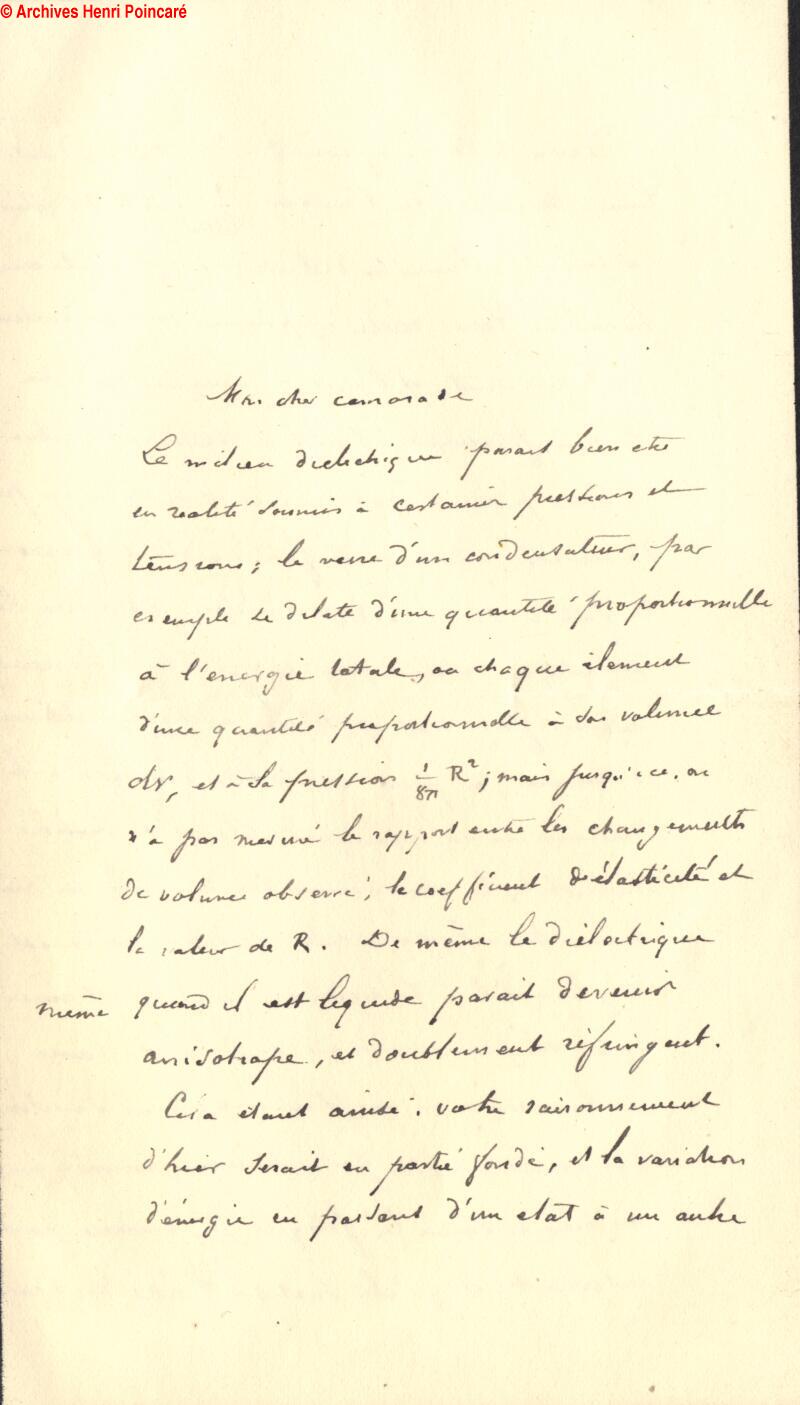 © Archives Henri Poincaré
Mon cher camarade
Le milieu dielectrique parait bien etre
en realité soumis à certaines pressions et
tensions ; le verre d'un condensateur, par
exemple se dilate d'une quantité proportionnelle
à l'energie totale, ou chaque élement
d'une quantité proportionnelle à son volume
dv, et à la pression 1/8π R² ; mais jusqu'ici on
n'a pas mesuré le rapport entre les changements
de volume observé, le coefficient d'élasticité et
la valeur de R. De même le diélectrique
même quand il est liquide parait devenir
anisotrope, et doublement réfringent.
Cela etant ainsi, votre raisonnement
d'hier serait en partie fondé, et la variation
d'énergie en passant d'un etat à un autre